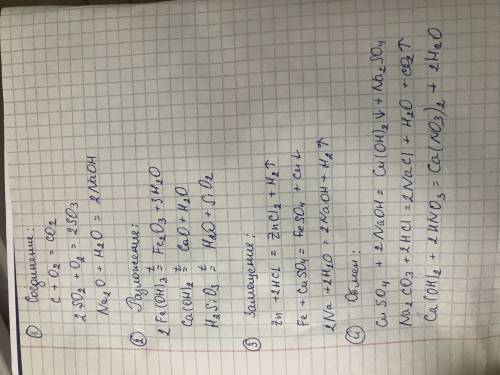 ① Соединение:
C + O₂ = CO₂
2SO₂ + O₂ = 2SO₃
Na₂O + H₂O = 2NaOH
② Разложение:
2Fe(OH)₃ t= Fe₂O₃ + 3H₂O
Ca(OH)₂ t= CaO + H₂O
H₂SiO₃ t= H₂O + SiO₂
③ Замещение:
Zn + 2HCl = ZnCl₂ + H₂↑
Fe + CuSO₄ = FeSO₄ + Cu↓
2Na + 2H₂O = 2NaOH + H₂↑
④ Обмен:
CuSO₄ + 2NaOH = Cu(OH)₂↓ + Na₂SO₄
Na₂CO₃ + 2HCl = 2NaCl + H₂O + CO₂↑
Ca(OH)₂ + 2HNO₃ = Ca(NO₃)₂ + 2H₂O